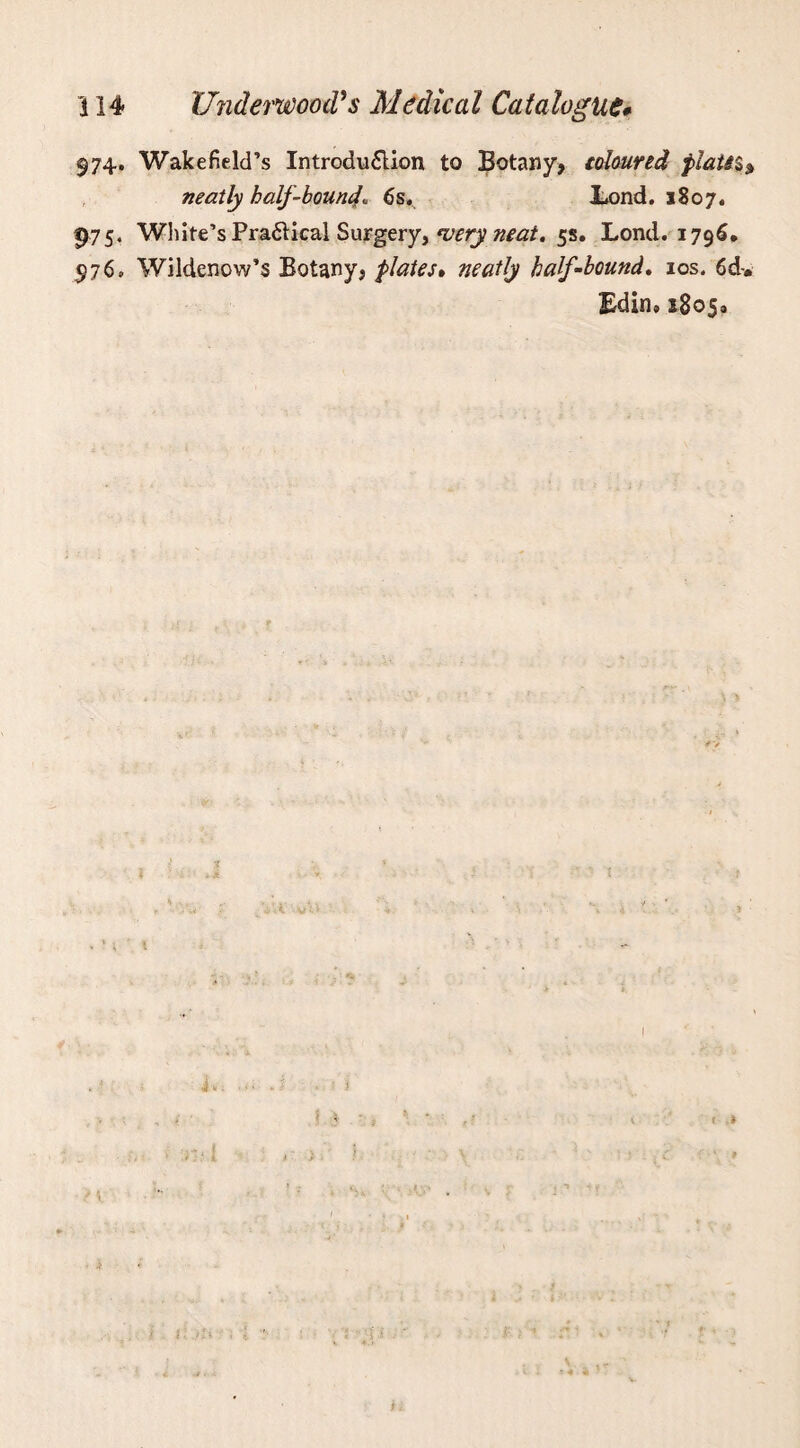 114 Underwood's Medical Catalogue.
974. Wakefield's Introduction to Botany, coloured plates,
neatly half-bound. 6s. Lond. 1807.
975. White's Practical Surgery, very neat. 5s. Lond. 1796.
976. Wildenow's Botany, plates. neatly half-bound. 10s. 6d.
Edin. 1805.